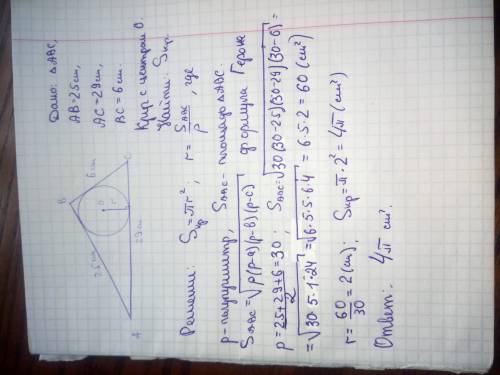 Дано: △ABC,
AB=25cm,
AC=29cm,
BC=6cm.
Круг с центром O.
Найти: Sкр.
B
6cm
C
O
r
25cm
29cm
A
Решение: Sкр=πr²; r=SABC/p, где
p-полупериметр, SABC-площадь △ABC.
SABC=√p(p-a)(p-b)(p-c) формула Герона
p=25+29+6/2=30; SABC=√30(30-25)(30-29)(30-6)=
=√30·5·1·24=√6·5·5·6·4=6·5·2=60(cm²)
r=60/30=2(cm); Sкр=π·2²=4π(cm²)
Ответ: 4π cm².